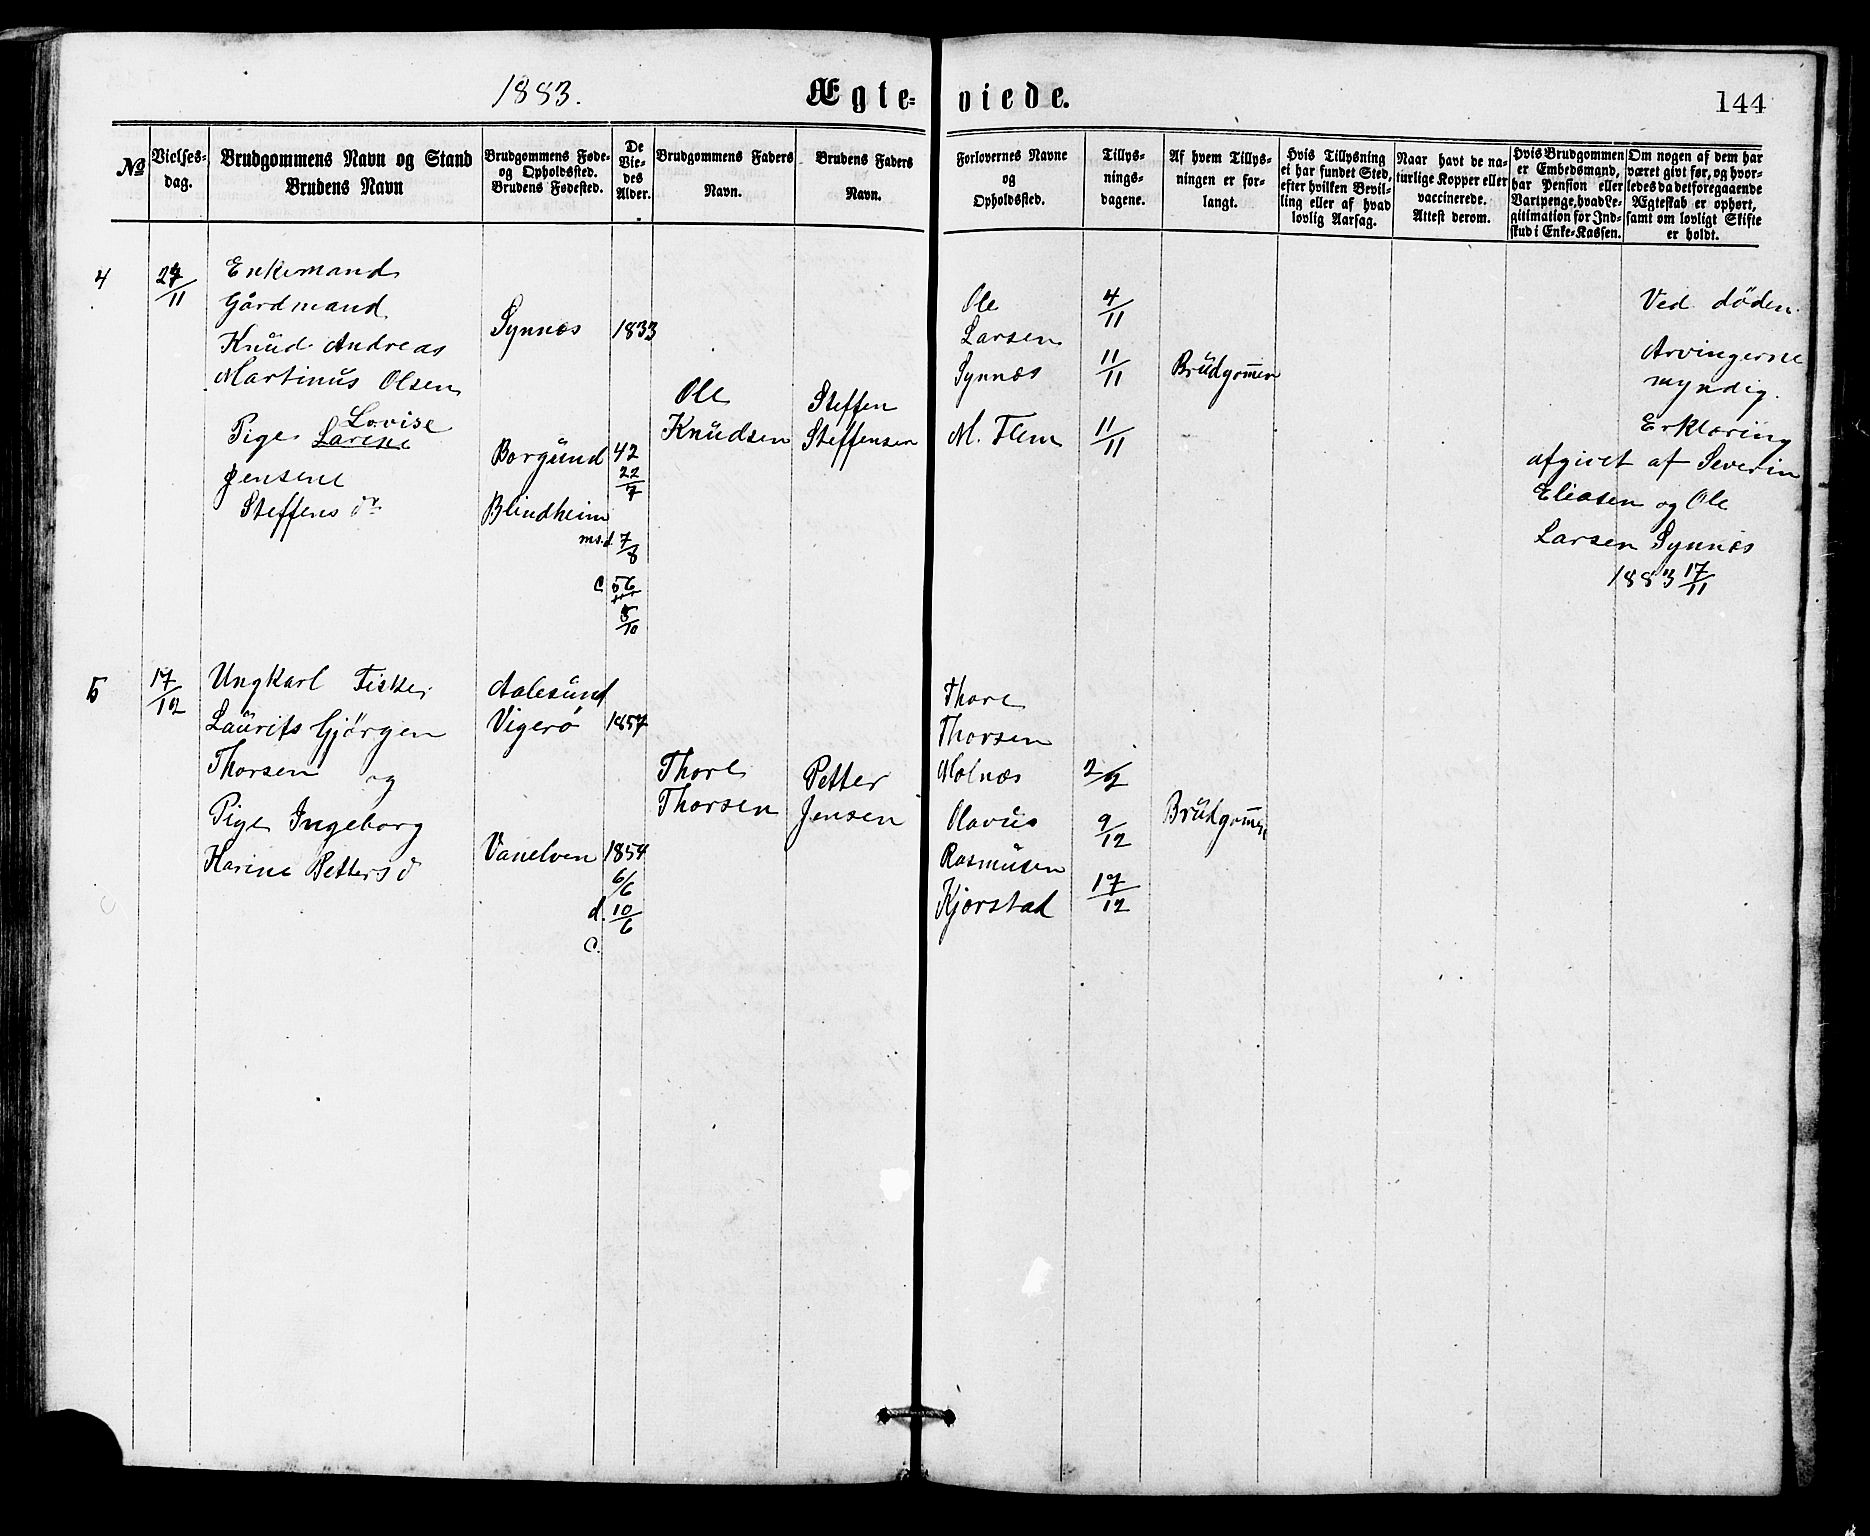 1883.
Ægte-
viede.
144
№
Vielses-
dag.
Brudgommens Navn og Stand
Brudens Navn
Brudgommens Føde-
og Opholdsted.
Brudens Fødested.
De
Vie-
des
Alder.
Brudgommens Faders
Navn.
Brudens Faders
Navn.
Forlovernes Navne
og
Opholdssted.
Tillys-
nings-
dagene.
Af hvem Tillys-
ningen er for-
langt.
Hvis Tillysning
ei har fundet Sted,
efter hvilken Bevil-
ling eller af hvad
lovlig Aarsag.
Naar havt de na-
turlige Kopper eller
vaccinerede.
Attest derom.
Hvis Brudgommen
er Embedsmand,
har Pension eller
Vartpenge, hvad Le-
gitimation for Ind-
skud i Enke-Kassen.
Om nogen af dem har
været givt før, og hvor-
ledes da det foregaaende
Ægteskab er ophørt,
samt om lovligt Skifte
er holdt.
4
/11
Enkemand
Gårdmand
Knud Andreas
Martinus Olsen
Pige Lovise
Larene
Jensene
Steffensdr
Synnæs
Borgund
Blindheim
1833
42
22/7
d. 7/8
c 56
5/10
Ole
Knudsen
Steffen
Steffensen
Ole
Larsen
Synnæs
M. Flem
4/11
11/11
11/11
Brudgomen
Ved døden
Arvingerne
myndig.
Erklæring
afgivet af Severin
Eliasen og Ole
Larsen Synnæs
1883 17/11
5
17/12
Ungkarl Fisker
Laurits Gjørgen
Thorsen og
Pige Ingeborg
Karine Pettersd
Aalesund
Vigerø
Vanelven
1857
1854
6/6
d. 10/6
c.
Thore
Thorsen
Petter
Jensen
Thore
Thorsen
Molnæs
Olavus
Rasmusen
Kjørstad
9/12
17/12
Brudgomen